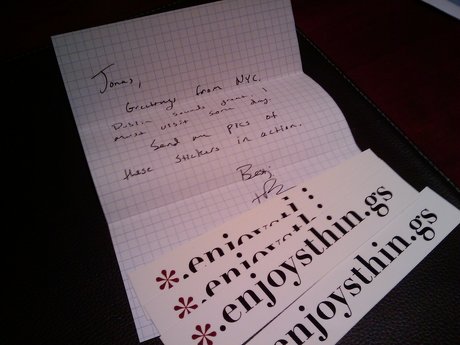 Jonas,
Greetings from NYC.
Dublin sounds great, I
must visit some day.
Send me pics of
these stickers in action.
Best,
*.enjoysthi
*.enjoysthi
*.enjoysthin.gs
enjoysthin.gs